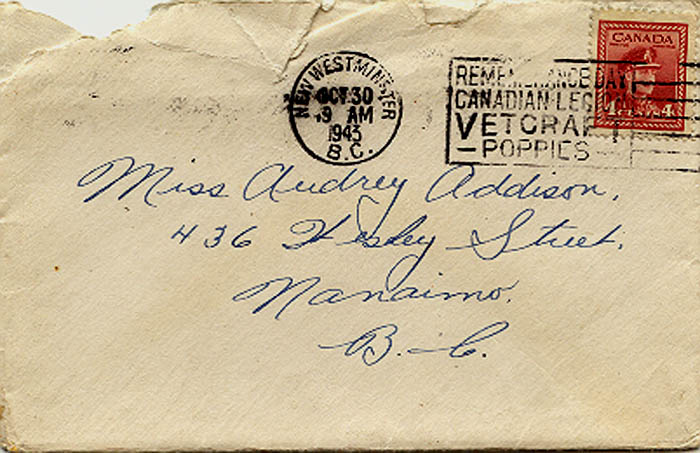 NEW WESTMINSTER
OCT 30
9 AM
1943
B.C.
REMEMBRANCE DAY
CANADIAN LEGION
VETCRAFT
POPPIES
CANADA
4
Miss Audrey Addison,
436 Wesley Street,
Nanaimo.
B.C.